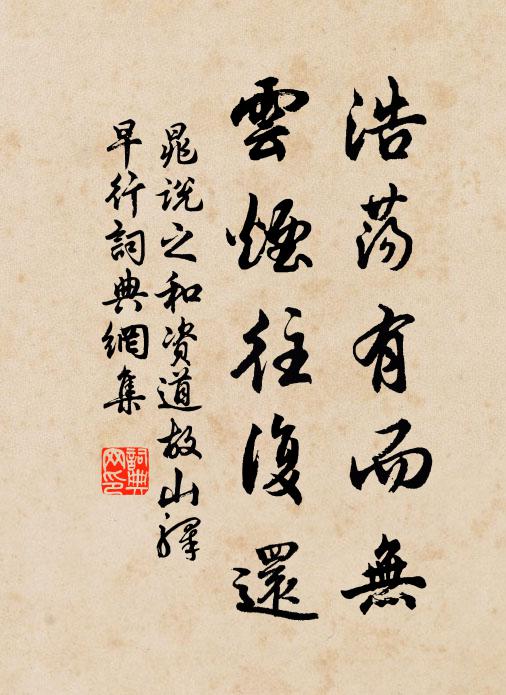 浩蕩有而無
雲煙往復還
晁説之和資道故山驛
早行詞典網集
詞典網印